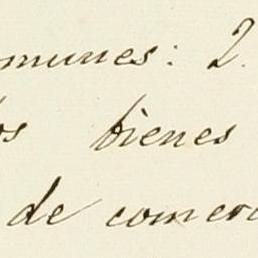 munes: 2.
os bienes
de comer